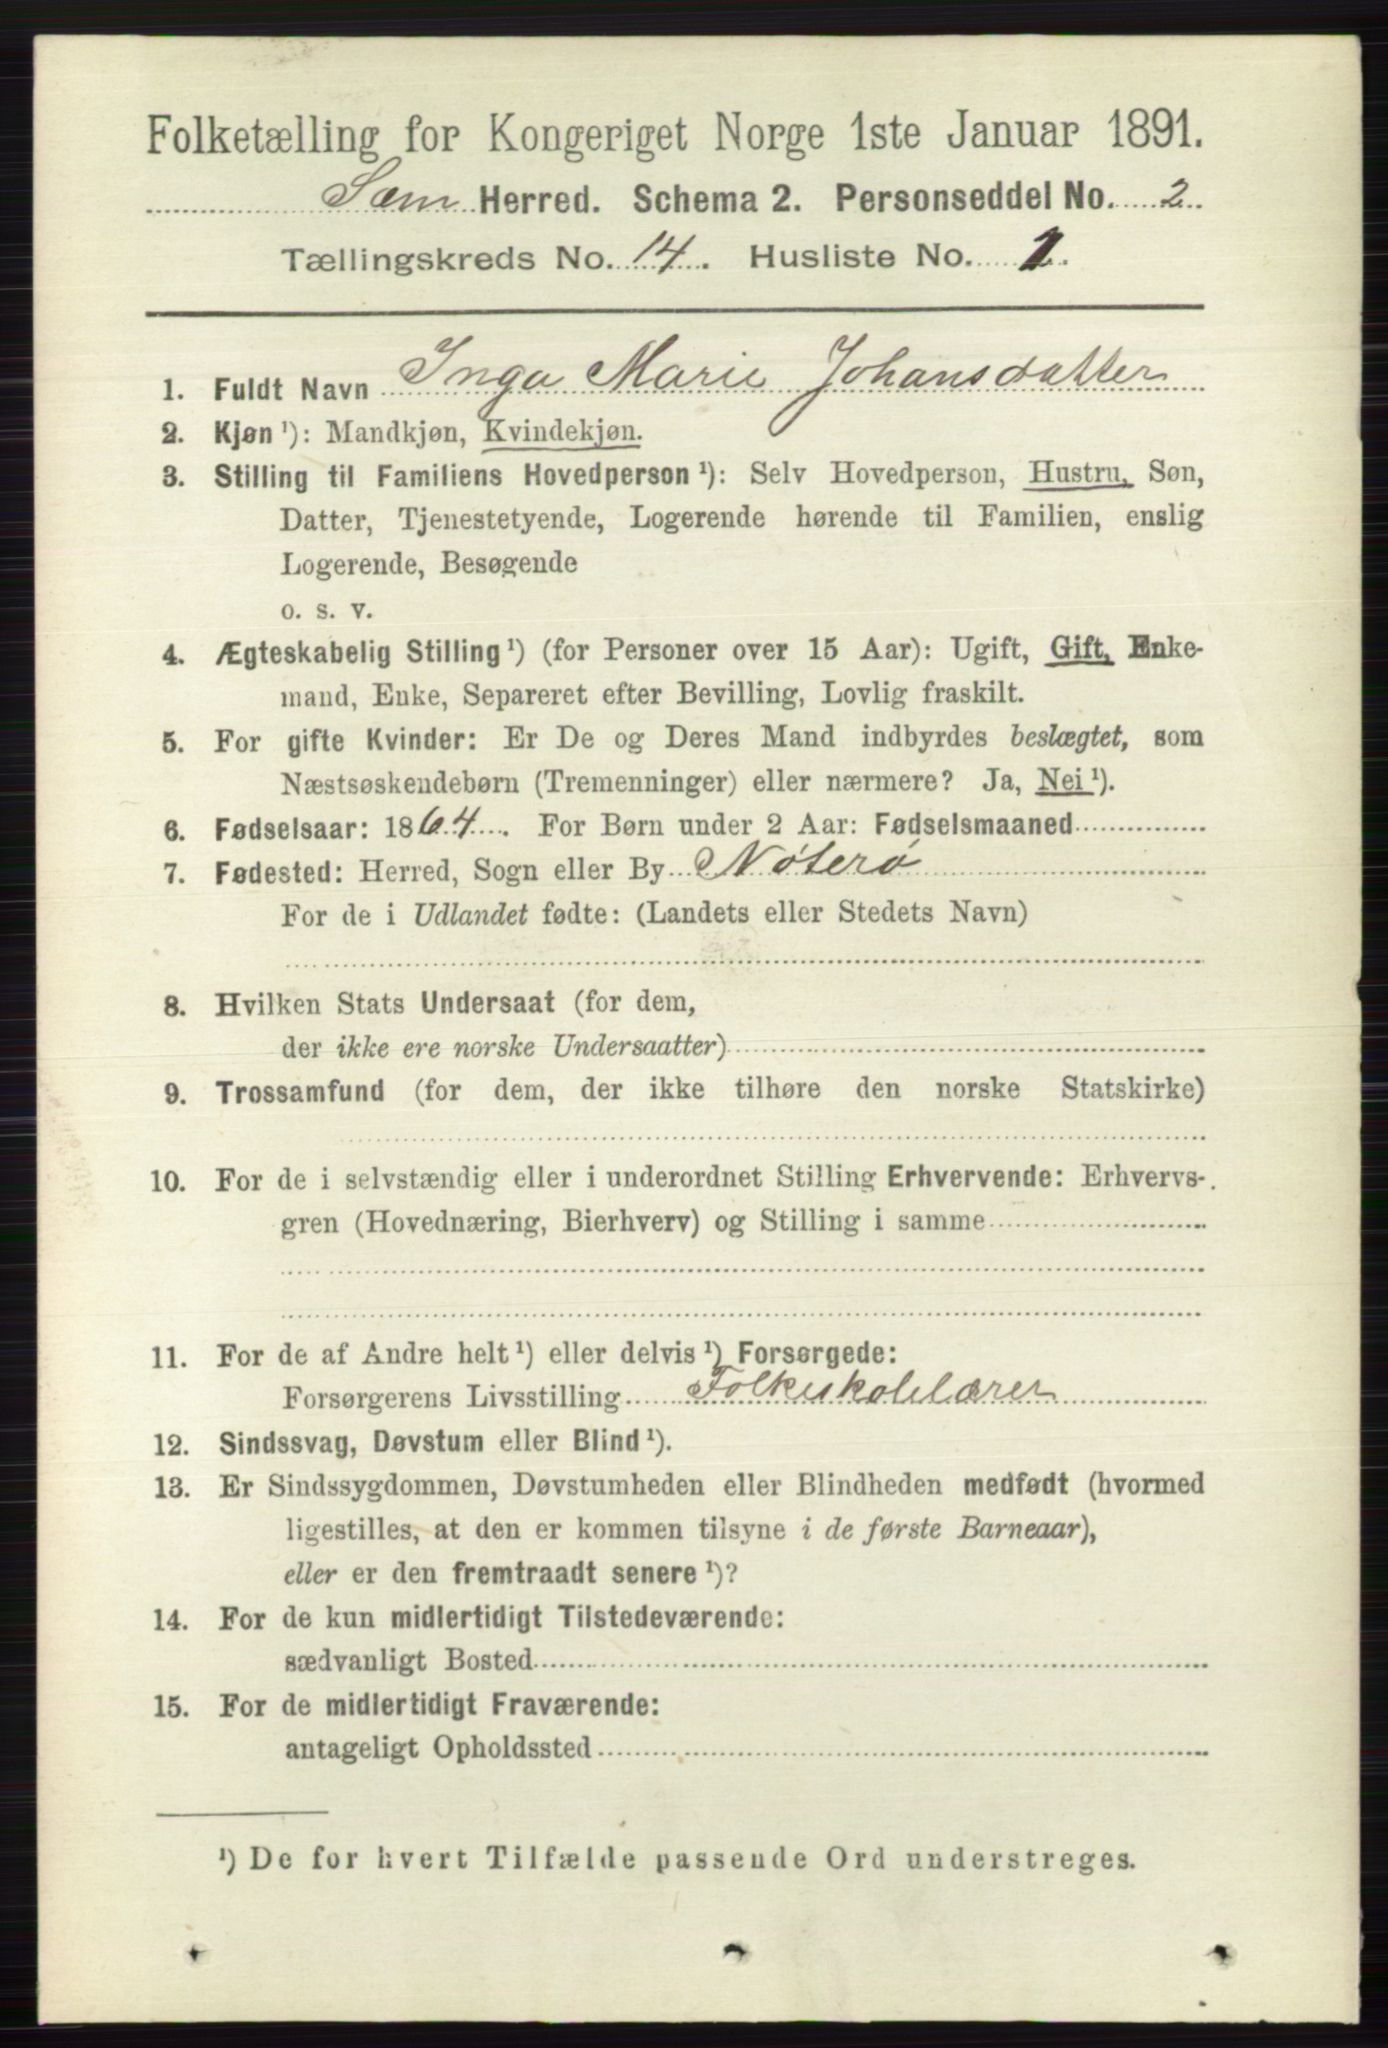 Folketælling for Kongeriget Norge 1ste Januar 1891.
Sem Herred. Schema 2. Personseddel No. 2.
Tællingskreds No. 14. Husliste No. 1.
1. Fuldt Navn Inga Marie Johansdatter
2. Kjøn ¹): Mandkjøn, Kvindekjøn.
3. Stilling til Familiens Hovedperson ¹): Selv Hovedperson, Hustru, Søn,
Datter, Tjenestetyende, Logerende hørende til Familien, enslig
Logerende, Besøgende
o. s. v.
4. Ægteskabelig Stilling ¹) (for Personer over 15 Aar): Ugift, Gift, Enke-
mand, Enke, Separeret efter Bevilling, Lovlig fraskilt.
5. For gifte Kvinder: Er De og Deres Mand indbyrdes beslægtet, som
Næstsøskendebørn (Tremenninger) eller nærmere? Ja, Nei ¹).
6. Fødselsaar: 1864. For Børn under 2 Aar: Fødselsmaaned
7. Fødested: Herred, Sogn eller By Nøterø
For de i Udlandet fødte: (Landets eller Stedets Navn)
8. Hvilken Stats Undersaat (for dem,
der ikke ere norske Undersaatter)
9. Trossamfund (for dem, der ikke tilhøre den norske Statskirke)
10. For de i selvstændig eller i underordnet Stilling Erhvervende: Erhvervs-
gren (Hovednæring, Bierhverv) og Stilling i samme
11. For de af Andre helt ¹) eller delvis ¹) Forsørgede:
Forsørgerens Livsstilling Folkeskolelærer
12. Sindssvag, Døvstum eller Blind ¹).
13. Er Sindssygdommen, Døvstumheden eller Blindheden medfødt (hvormed
ligestilles, at den er kommen tilsyne i de første Barneaar),
eller er den fremtraadt senere ¹)?
14. For de kun midlertidigt Tilstedeværende:
sædvanligt Bosted
15. For de midlertidigt Fraværende:
antageligt Opholdssted
¹) De for hvert Tilfælde passende Ord understreges.